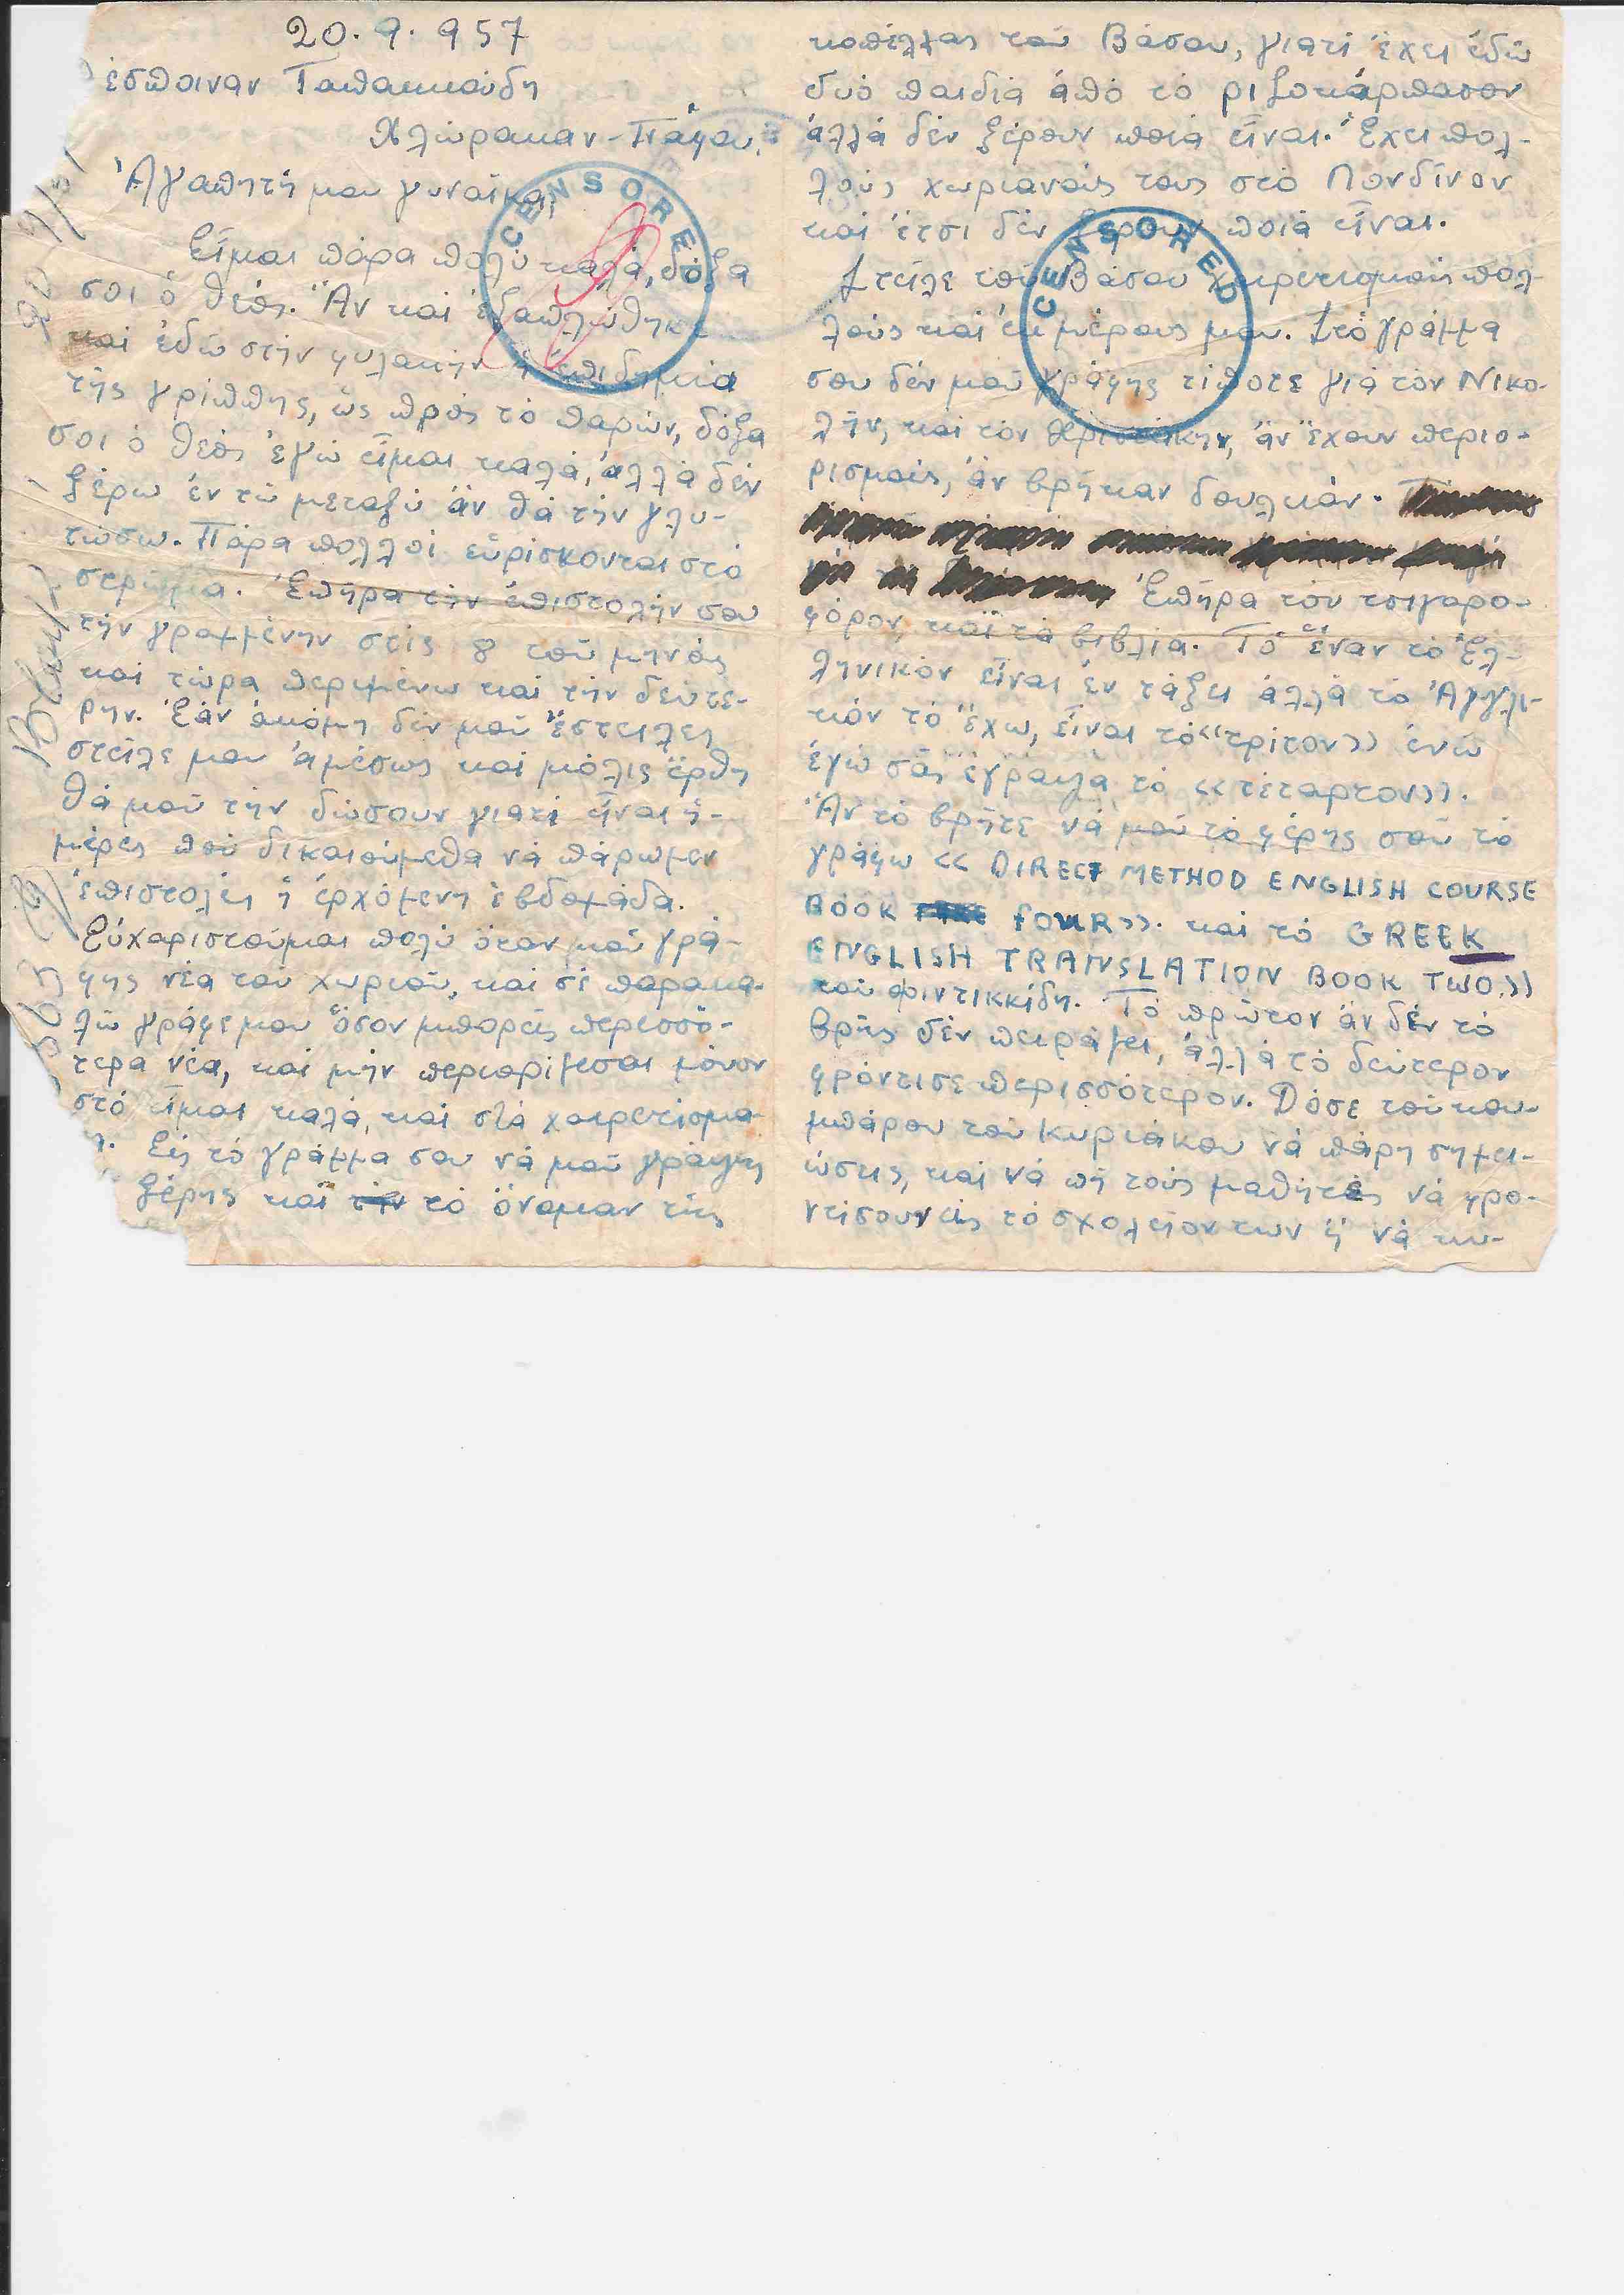 20.9.957
έσποιναν Ταπακκούδη
Χλώρακαν-Πάφου.
Ἀγαπητή μου γυναίκα,
Εἶμαι πάρα πολύ καλά, δόξα
σοι ὁ θεός. Ἄν καί ἐξαπλώθηκε
καί ἐδῶ στήν φυλακήν ἡ ἐπιδημία
τῆς γρίππης, ὡς πρός τό παρών, δόξα
σοι ὁ θεός ἐγώ εἶμαι καλά, ἀλλά δέν
ξέρω ἐν τῶ μεταξύ ἄν θά τήν γλυ-
τώσω. Πάρα πολλοί εὑρίσκονται στό
στρῶμα. Ἐπῆρα τήν ἐπιστολήν σου
τήν γραμμένην στίς 8 τοῦ μηνός
καί τώρα περιμένω καί τήν δεύτε-
ρην. Ἐάν ἀκόμη δέν μοῦ ἔστειλες
στεῖλε μου ἀμέσως καί μόλις ἔρθη
θά μοῦ τήν δώσουν γιατί εἶναι ἡ-
μέρες πού δικαιούμεθα νά πάρωμεν
ἐπιστολές ἡ ἐρχόμενη ἑβδομάδα.
Εὐχαριστοῦμαι πολύ ὅταν μοῦ γρά-
φης νέα τοῦ χωριοῦ, καί σέ παρακα-
λῶ γράφε μου ὅσον μπορεῖς περισσό-
τερα νέα, καί μήν περιορίζεσαι μόνον
στό εἶμαι καλά, καί στά χαιρετίσμα-
Εἰς τό γράμμα σου νά μοῦ γράψης
ξέρης καί τήν τό ὄνομαν τῆς
κοπέλλας τοῦ Βάσου, γιατί ἔχει ἐδῶ
δυό παιδιά ἀπό τό ριζοκάρπασον
ἀλλά δέν ξέρουν ποιά εἶναι. Ἔχει πολ-
λούς χωριανούς τους στό Λονδίνον
καί ἔτσι δέν ξέρουν ποιά εἶναι.
Στεῖλε τοῦ Βάσου χαιρετισμούς πολ-
λούς καί ἐκ μέρους μου. Στό γράμμα
σου δέν μοῦ γράφης τίποτε γιά τόν Νικο-
λήν, καί τόν Χριστάκην, ἄν ἔχουν περιο-
ρισμούς, ἄν βρῆκαν δουλκάν.
Ἐπῆρα τόν τσιγαρο-
φόρον, καί τά βιβλία. Τό ἕναν τό Ἑλ-
ληνικόν εἶναι ἐν τάξει ἀλλά τό Ἀγγλι-
κόν τό ἔχω, εἶναι τό «τρίτον» ἐνῶ
ἐγώ σᾶς ἔγραψα τό «τέταρτον».
Ἄν τό βρῆτε νά μοῦ τό φέρης σοῦ τό
γράφω « DIRECT METHOD ENGLISH COURSE
BOOK FOUR». καί τό GREEK
ENGLISH TRANSLATION BOOK TWO.»
τοῦ Φιντικκίδη. Τό πρῶτον ἄν δέν τό
βρῆς δέν πειράζει, ἀλλά τό δεύτερον
φρόντισε περισσότερον. Δόσε τοῦ κου-
μπάρου τοῦ Κυριάκου νά πάρη σημει-
ώσεις, καί νά πῆ τούς μαθητάς νά φρο-
ντίσουν εἰς τό σχολεῖον των ἤ νά κυ-
CENSORED
CENSORED